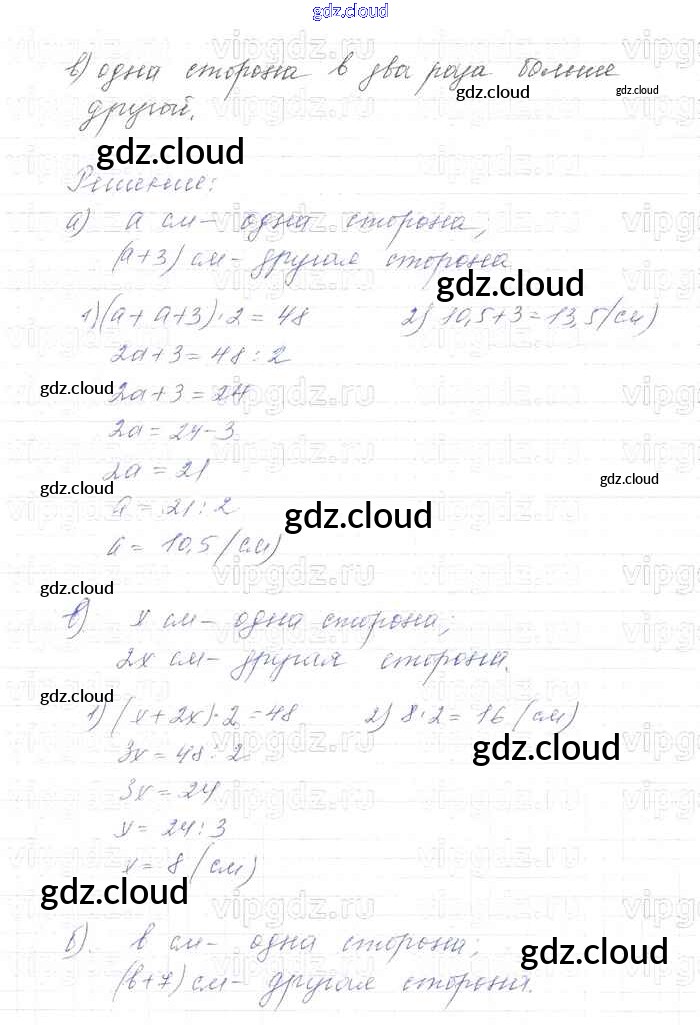 gdz.cloud
в) одна сторона в два раза больше
gdz.cloud gdz.cloud
другой.
gdz.cloud
Решение:
а) a см – одна сторона;
(a+3) см – другая сторона
gdz.cloud
1) (a + a+3)·2 = 48 2) 10,5+3=13,5 (см)
2a+3 = 48 : 2
gdz.cloud 2a+3 = 24
2a = 24-3
2a = 21
gdz.cloud gdz.cloud
a = 21 : 2
gdz.cloud
a = 10,5 (см)
gdz.cloud
в) x см – одна сторона;
2x см – другая сторона.
gdz.cloud
1) (x+2x)·2 = 48 2) 8·2 = 16 (см)
gdz.cloud
3x = 48 : 2
3x = 24
x = 24 : 3
x = 8 (см)
gdz.cloud
б). b см – одна сторона;
gdz.cloud
(b+7) см – другая сторона.